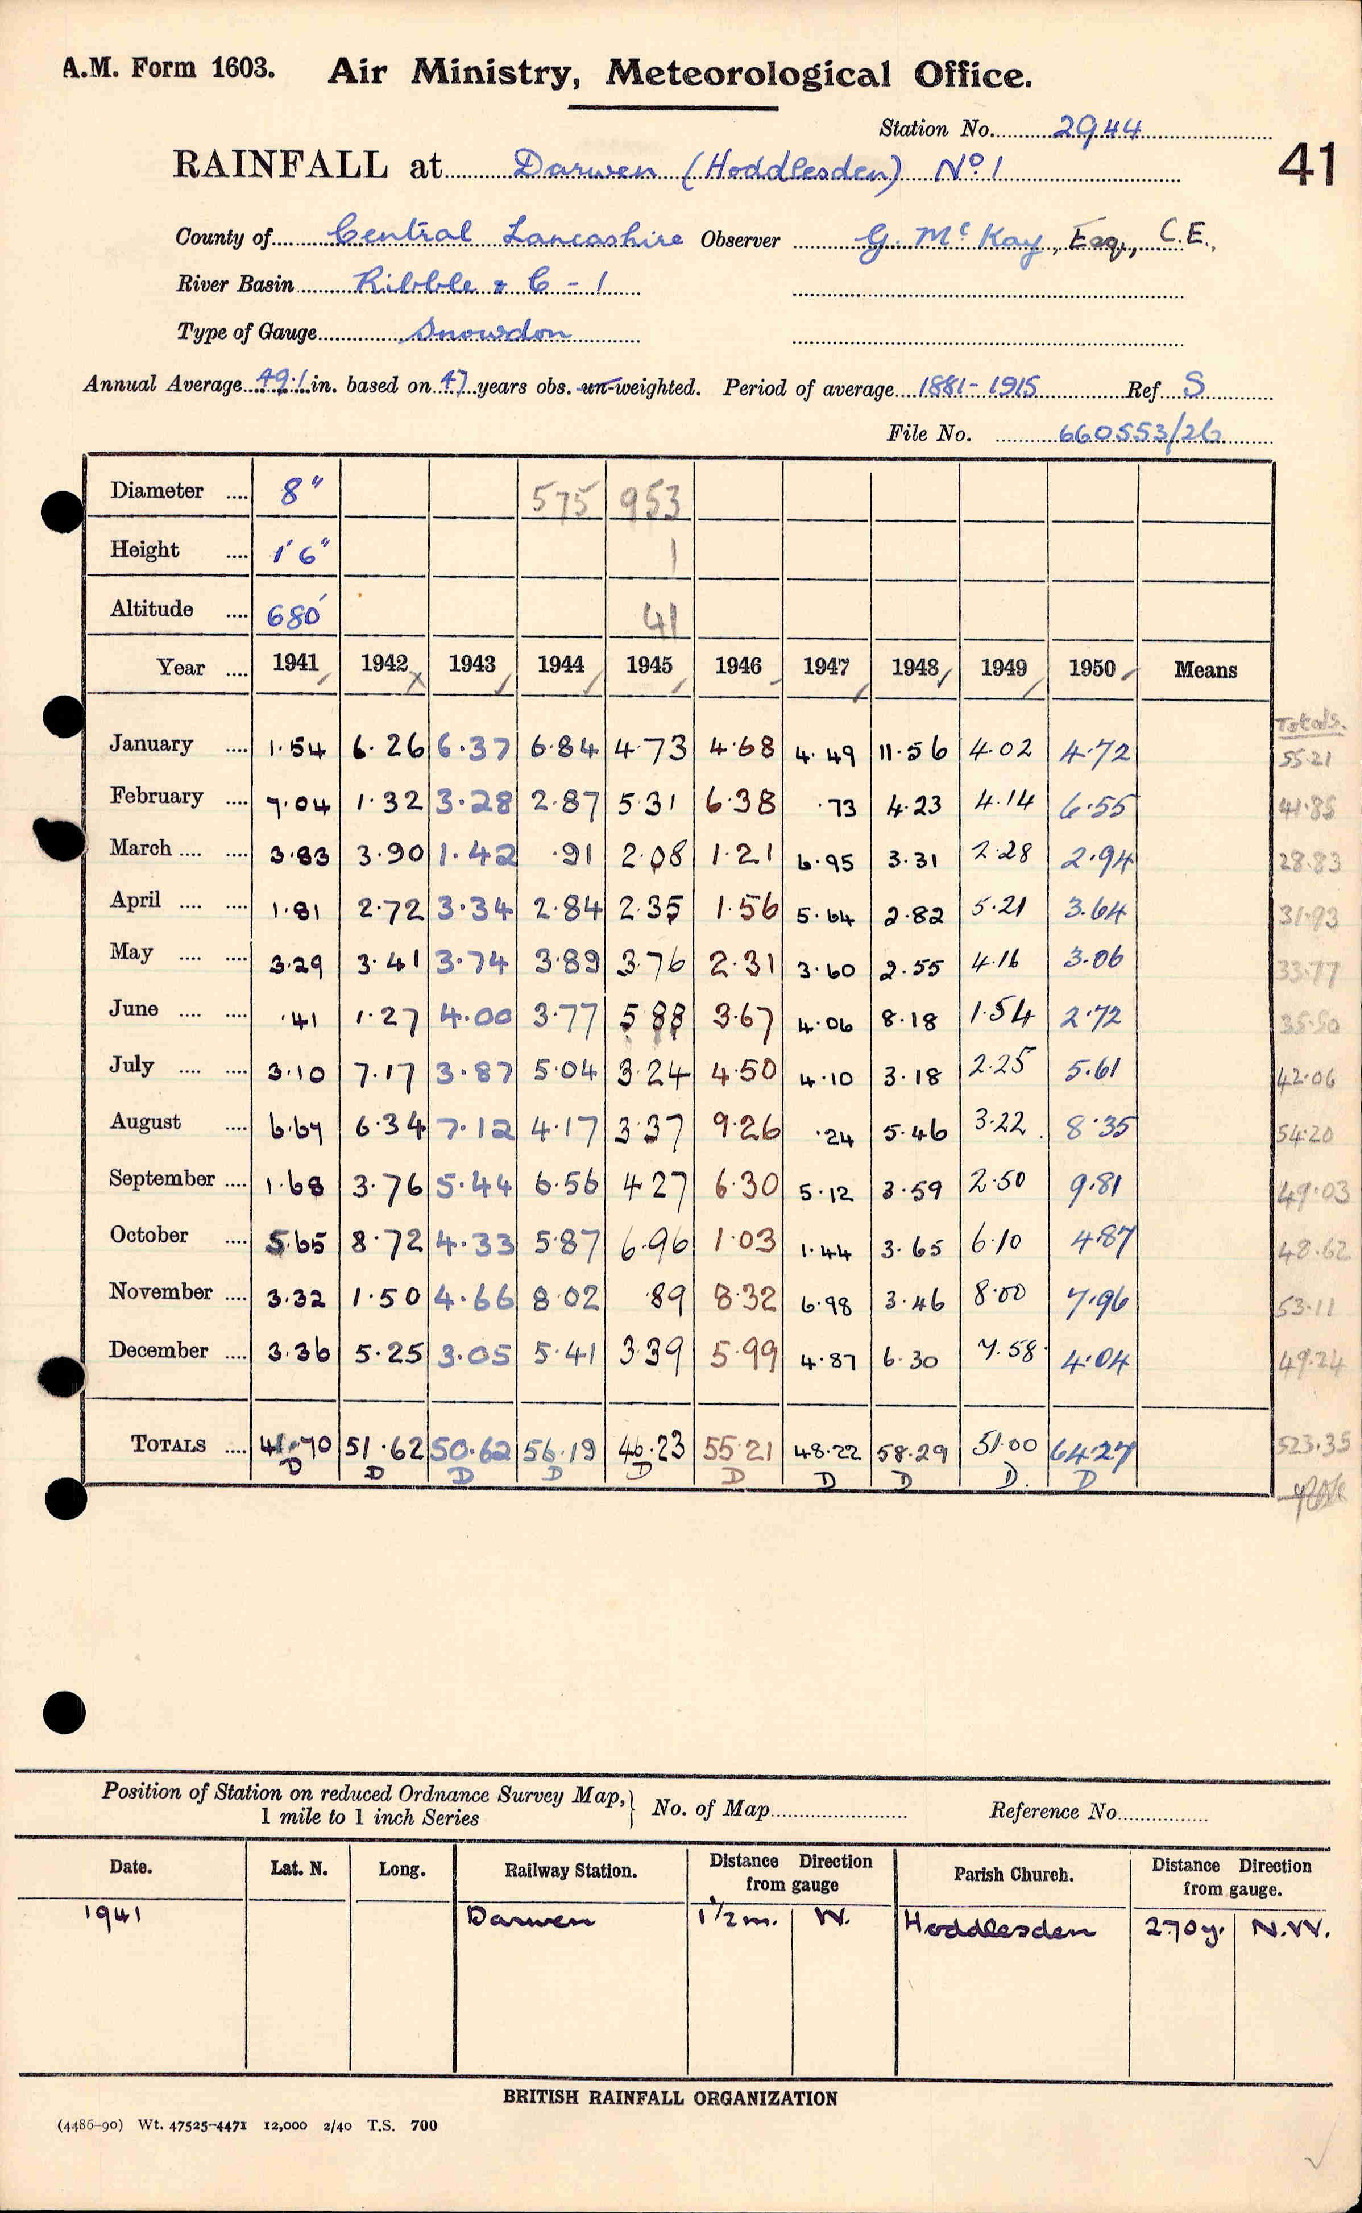 A.M. Form 1603. Air Ministry, Meteorological Office.
Station No. 2944
RAINFALL at Darwen (Hoddlesden) No 1 41
County of Central Lancashire Observer G. Mc Kay, Esq., C.E.,
River Basin Ribble & C - 1
Type of Gauge Snowdon
Annual Average 49.1 in. based on 47 years obs. un-weighted. Period of average 1881-1915 Ref S
File No. 660553/26
Diameter .... 8" 575 953
Height .... 1' 6" 1
Altitude .... 680' 41
Year .... 1941 1942 1943 1944 1945 1946 1947 1948 1949 1950 Means
Totals.
January .... 1.54 6.26 6.37 6.84 4.73 4.68 4.49 11.56 4.02 4.72 55.21
February .... 7.04 1.32 3.28 2.87 5.31 6.38 .73 4.23 4.14 6.55 41.85
March .... .... 3.83 3.90 1.42 .91 2.08 1.21 6.95 3.31 2.28 2.94 28.83
April .... .... 1.81 2.72 3.34 2.84 2.35 1.56 5.64 2.82 5.21 3.64 31.93
May .... .... 3.29 3.41 3.74 3.89 3.76 2.31 3.60 2.55 4.16 3.06 33.77
June .... .... .41 1.27 4.00 3.77 5.88 3.67 4.06 8.18 1.54 2.72 35.50
July .... .... 3.10 7.17 3.87 5.04 3.24 4.50 4.10 3.18 2.25 5.61 42.06
August .... 6.67 6.34 7.12 4.17 3.37 9.26 .24 5.46 3.22 8.35 54.20
September .... 1.68 3.76 5.44 6.56 4.27 6.30 5.12 3.59 2.50 9.81 49.03
October .... 5.65 8.72 4.33 5.87 6.96 1.03 1.44 3.65 6.10 4.87 48.62
November .... 3.32 1.50 4.66 8.02 .89 8.32 6.98 3.46 8.00 7.96 53.11
December .... 3.36 5.25 3.05 5.41 3.39 5.99 4.87 6.30 7.58 4.04 49.24
TOTALS .... 41.70 51.62 50.62 56.19 46.23 55.21 48.22 58.29 51.00 64.27 523.35
D D D D D D D D D. D
Position of Station on reduced Ordnance Survey Map, No. of Map Reference No.
1 mile to 1 inch Series
Date. Lat. N. Long. Railway Station. Distance Direction from gauge Parish Church. Distance Direction from gauge.
1941 Darwen 1 1/2 m. W. Hoddlesden 270y. N.W.
BRITISH RAINFALL ORGANIZATION
(4486-90) Wt. 47525-4471 12,000 2/40 T.S. 700